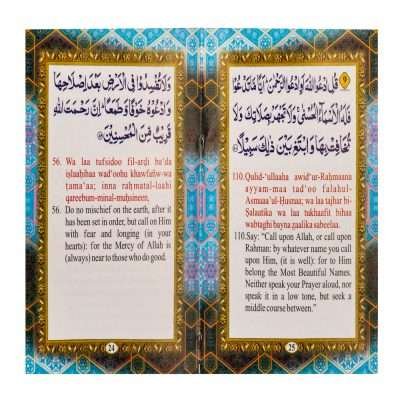 وَلَا تُفْسِدُوا فِى الْاَرْضِ بَعْدَ اِصْلَاحِهَا
وَادْعُوْهُ خَوْفًا وَّطَمَعًا ؕ اِنَّ رَحْمَتَ اللّٰهِ
قَرِيْبٌ مِّنَ الْمُحْسِنِيْنَ
56. Wa laa tufsidoo fil-arḍi ba'da
iṣlaaḥihaa wad'oohu khawfañw-wa
tama'aa; inna raḥmatal-laahi
qareebum-minal-muḥsineen.
56. Do no mischief on the earth, after it
has been set in order, but call on Him
with fear and longing (in your
hearts): for the Mercy of Allah is
(always) near to those who do good.
24
9 قُلِ ادْعُوا اللّٰهَ اَوِ ادْعُوا الرَّحْمٰنَ ؕ اَيًّا مَّا تَدْعُوْا
فَلَهُ الْاَسْمَآءُ الْحُسْنٰى ۚ وَلَا تَجْهَرْ بِصَلَاتِكَ وَلَا
تُخَافِتْ بِهَا وَابْتَغِ بَيْنَ ذٰلِكَ سَبِيْلًا
110.Qulid-'ullaaha awid'ur-Raḥmaana
ayyam-maa tad'oo falahul-
Asmaaa'ul-Ḥusnaa; wa laa tajhar bi-
Ṣalaatika wa laa tukhaafit bihaa
wabtaghi bayna zaalika sabeelaa.
110.Say: "Call upon Allah, or call upon
Rahman: by whatever name you call
upon Him, (it is well): for to Him
belong the Most Beautiful Names.
Neither speak your Prayer aloud, nor
speak it in a low tone, but seek a
middle course between."
25